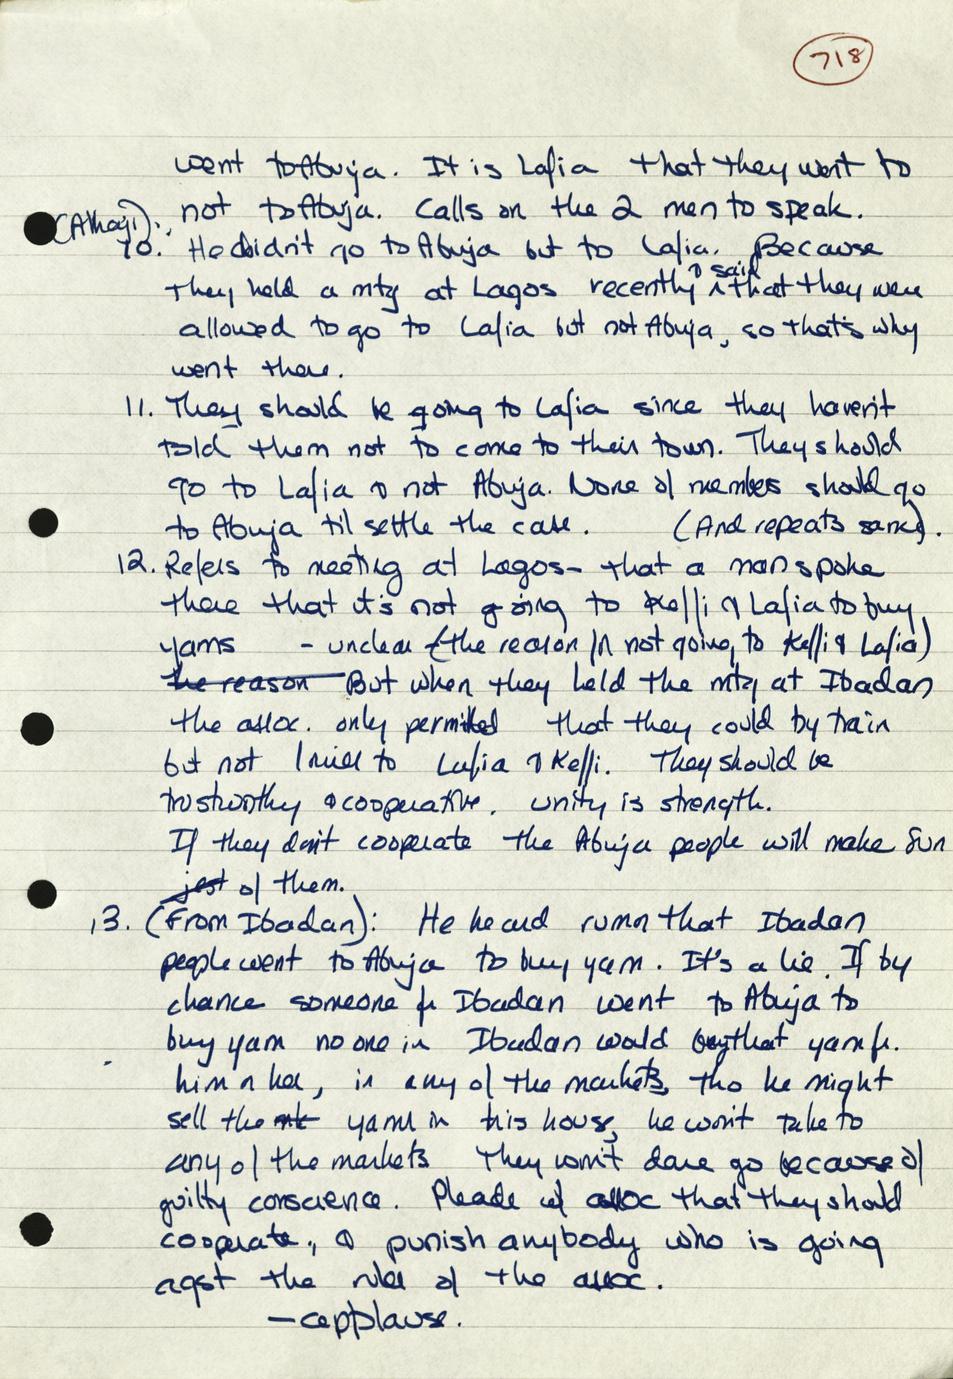 718
went to Abuja. It is Lafia that they went to
not to Abuja. Calls on the 2 men to speak.
(Alhaji):
10. He didn't go to Abuja but to Lafia. Because
they held a mtg at Lagos recently & said that they were
allowed to go to Lafia but not Abuja, so that's why
went there.
11. They should be going to Lafia since they haven't
told them not to come to their town. They should
go to Lafia & not Abuja. None of members should go
to Abuja til settle the case. (And repeats same).
12. Refers to meeting at Lagos - that a man spoke
there that it's not going to Keffi & Lafia to buy
yams - unclear (the reason for not going to Keffi & Lafia)
the reason But when they held the mtg at Ibadan
the assoc. only permitted that they could by train
but not to Lafia & Keffi. They should be
trustworthy & cooperative. Unity is strength.
If they don't cooperate the Abuja people will make fun
jest of them.
13. (From Ibadan): He heard rumor that Ibadan
people went to Abuja to buy yam. It's a lie. If by
chance someone fr Ibadan went to Abuja to
buy yam no one in Ibadan would buy that yam fr.
him or her, in any of the markets, tho he might
sell the mk yams in his house, he won't take to
any of the markets They won't dare go because of
guilty conscience. Pleads w/ assoc that they should
cooperate, & punish anybody who is going
agst the rules of the assoc.
- applause.